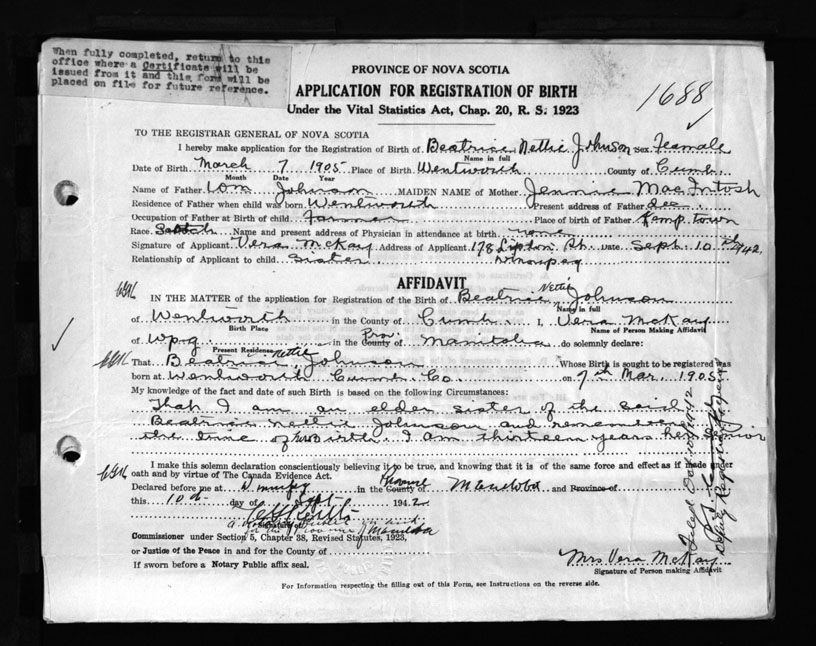 When fully completed, return to this
office where a Certificate will be
issued from it and this form will be
placed on file for future reference.
PROVINCE OF NOVA SCOTIA
APPLICATION FOR REGISTRATION OF BIRTH
Under the Vital Statistics Act, Chap. 20, R. S. 1923
1688
TO THE REGISTRAR GENERAL OF NOVA SCOTIA
I hereby make application for the Registration of Birth of Beatrice Nettie Johnson Sex Feamale
Name in full
Date of Birth March 7 1905 Place of Birth Wentworth County of Cumb.
Month Date Year
Name of Father Tom Johnson MAIDEN NAME of Mother Jennie MacIntosh
Residence of Father when child was born Wentworth Present address of Father dec.
Occupation of Father at Birth of child Farmer Place of birth of Father Kemptown
Race Scotch Name and present address of Physician in attendance at birth none
Signature of Applicant Vera McKay Address of Applicant 178 Lipton St. Date Sept. 10 1942.
Relationship of Applicant to child Sister Winnipeg
AFFIDAVIT
IN THE MATTER of the application for Registration of the Birth of Beatrice Nettie Johnson
Name in full
of Wentworth in the County of Cumb. I, Vera McKay
Birth Place Name of Person Making Affidavit
of Wpg in the County of Prov. Manitoba do solemnly declare:
Present Residence
That Beatrice Nettie Johnson Whose Birth is sought to be registered was
born at Wentworth Cumb. Co. on 7th Mar. 1905
My knowledge of the fact and date of such Birth is based on the following Circumstances:
That I am an elder sister of the said
Beatrice Nettie Johnson and remember
the time of her Birth. I am thirteen years her senior
I make this solemn declaration conscientiously believing it to be true, and knowing that it is of the same force and effect as if made under
oath and by virtue of The Canada Evidence Act.
Declared before me at Winnipeg in the County of Province Manitoba and Province of
this 10th day of Sept 1942
Signature of
for the Province of Manitoba
Commissioner under Section 5, Chapter 38, Revised Statutes, 1923,
or Justice of the Peace in and for the County of
If sworn before a Notary Public affix seal.
Mrs Vera McKay
Signature of Person making Affidavit
For Information respecting the filling out of this Form, see Instructions on the reverse side.